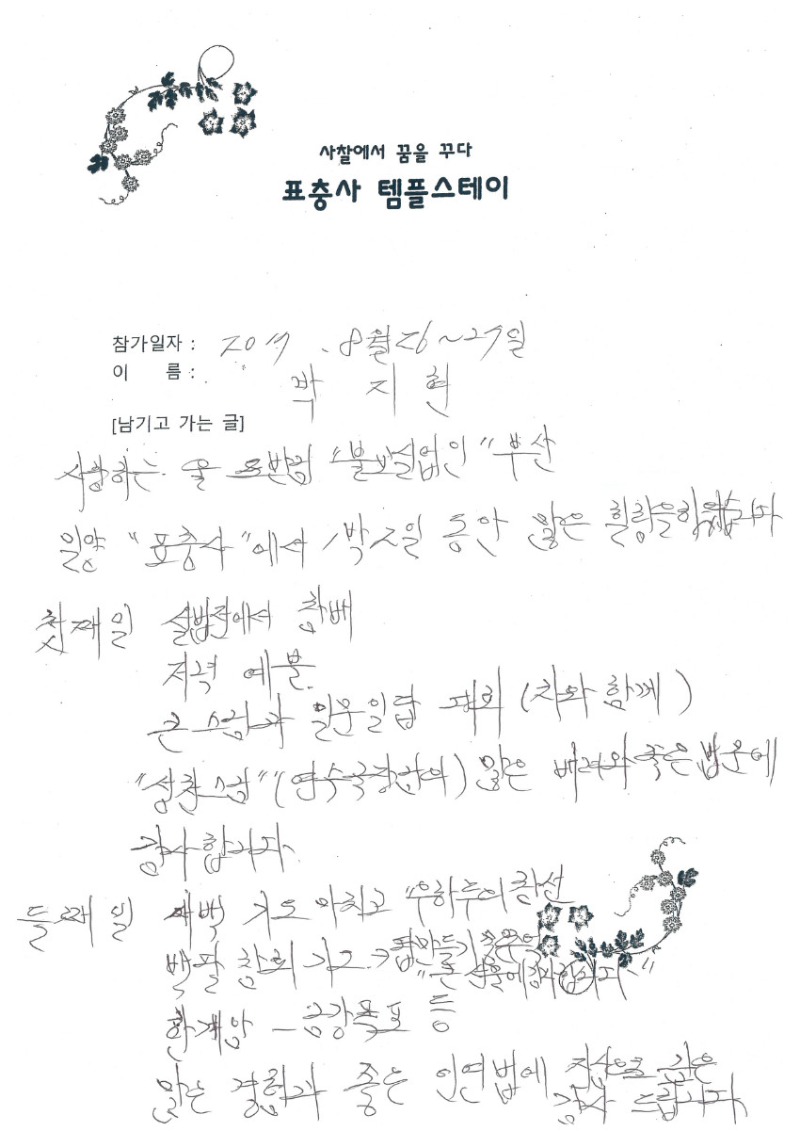 사찰에서 꿈을 꾸다
표충사 템플스테이
참가일자 : 2017 . 8월 26~27일
이 름 : 박 지 현
[남기고 가는 글]
사랑하는 울 도반님 "불보설법인" 부산
밀양 "표충사"에서 1박 2일 동안 많은 힐링을
첫째일 설법전에서 참배
저녁 예불
큰 스님과 일문일답 (차와 함께)
스님" 많은 배려와 좋은 법문에
감사합니다.
둘째일 새벽 기도 마치고
백팔 참회 기도
한계암 - 금강폭포 등
많은 경험과 좋은 인연법에 진심으로 깊은
감사 드립니다